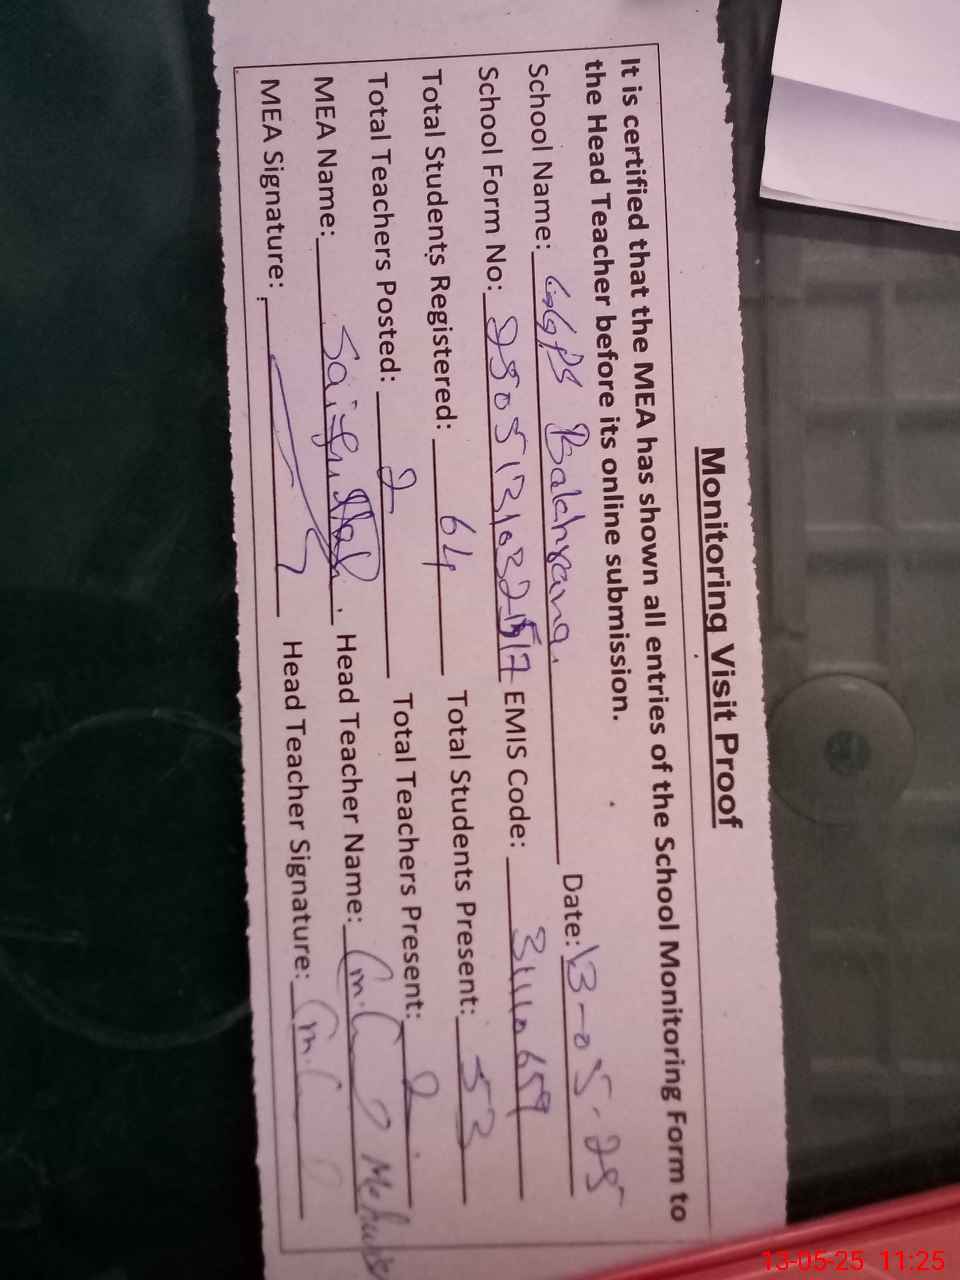 Monitoring Visit Proof
It is certified that the MEA has shown all entries of the School Monitoring Form to
the Head Teacher before its online submission.
School Name: GGPS Date: 13-05-25
School Form No: EMIS Code:
Total Students Registered: 64 Total Students Present: 53
Total Teachers Posted: 2 Total Teachers Present: 2
MEA Name: Saifullah. Head Teacher Name:
MEA Signature: Head Teacher Signature:
13-05-25 11:25